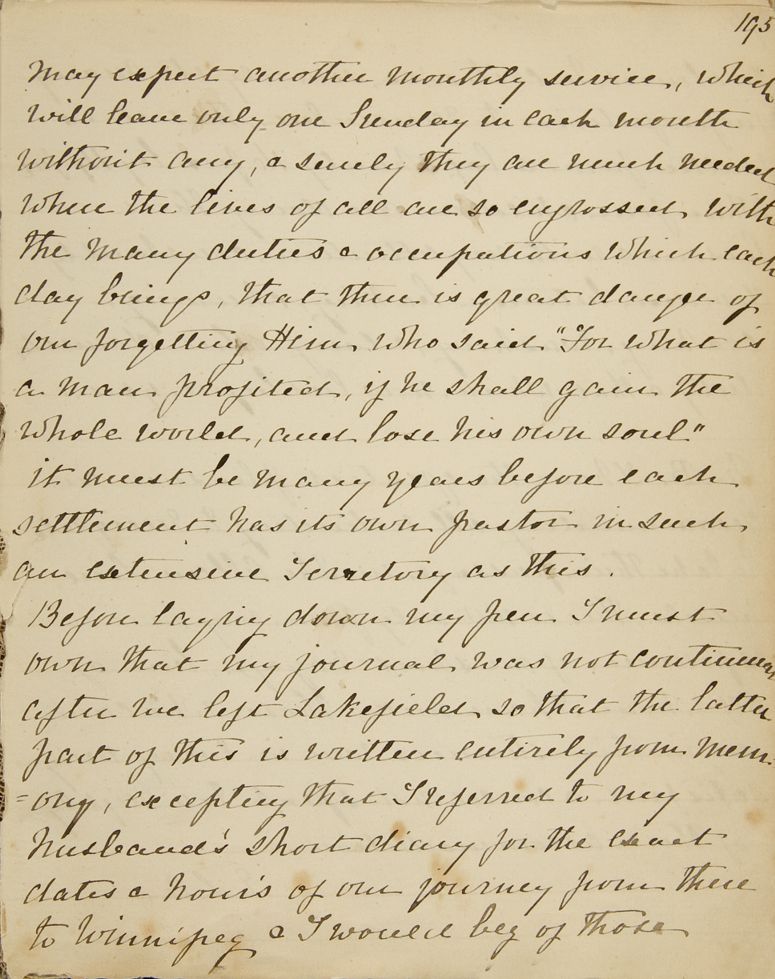 195
may expect another monthly service, which
will leave only one Sunday in each month
without any, & surely they are much needed
when the lives of all are so engrossed with
the many duties & occupations which each
day brings, that there is great danger of
our forgetting Him, who said "For what is
a man profited, if he shall gain the
whole world, and lose his own soul"
it must be many years before each
settlement has its own pastor in such
an extensive Territory as this.
Before laying down my pen I must
own that my journal was not continued
after we left Lakefield so that the latter
part of this is written entirely from mem:
=ory, excepting that I referred to my
husband's short diary for the exact
dates & hours of our journey from there
to Winnipeg & I would beg of those